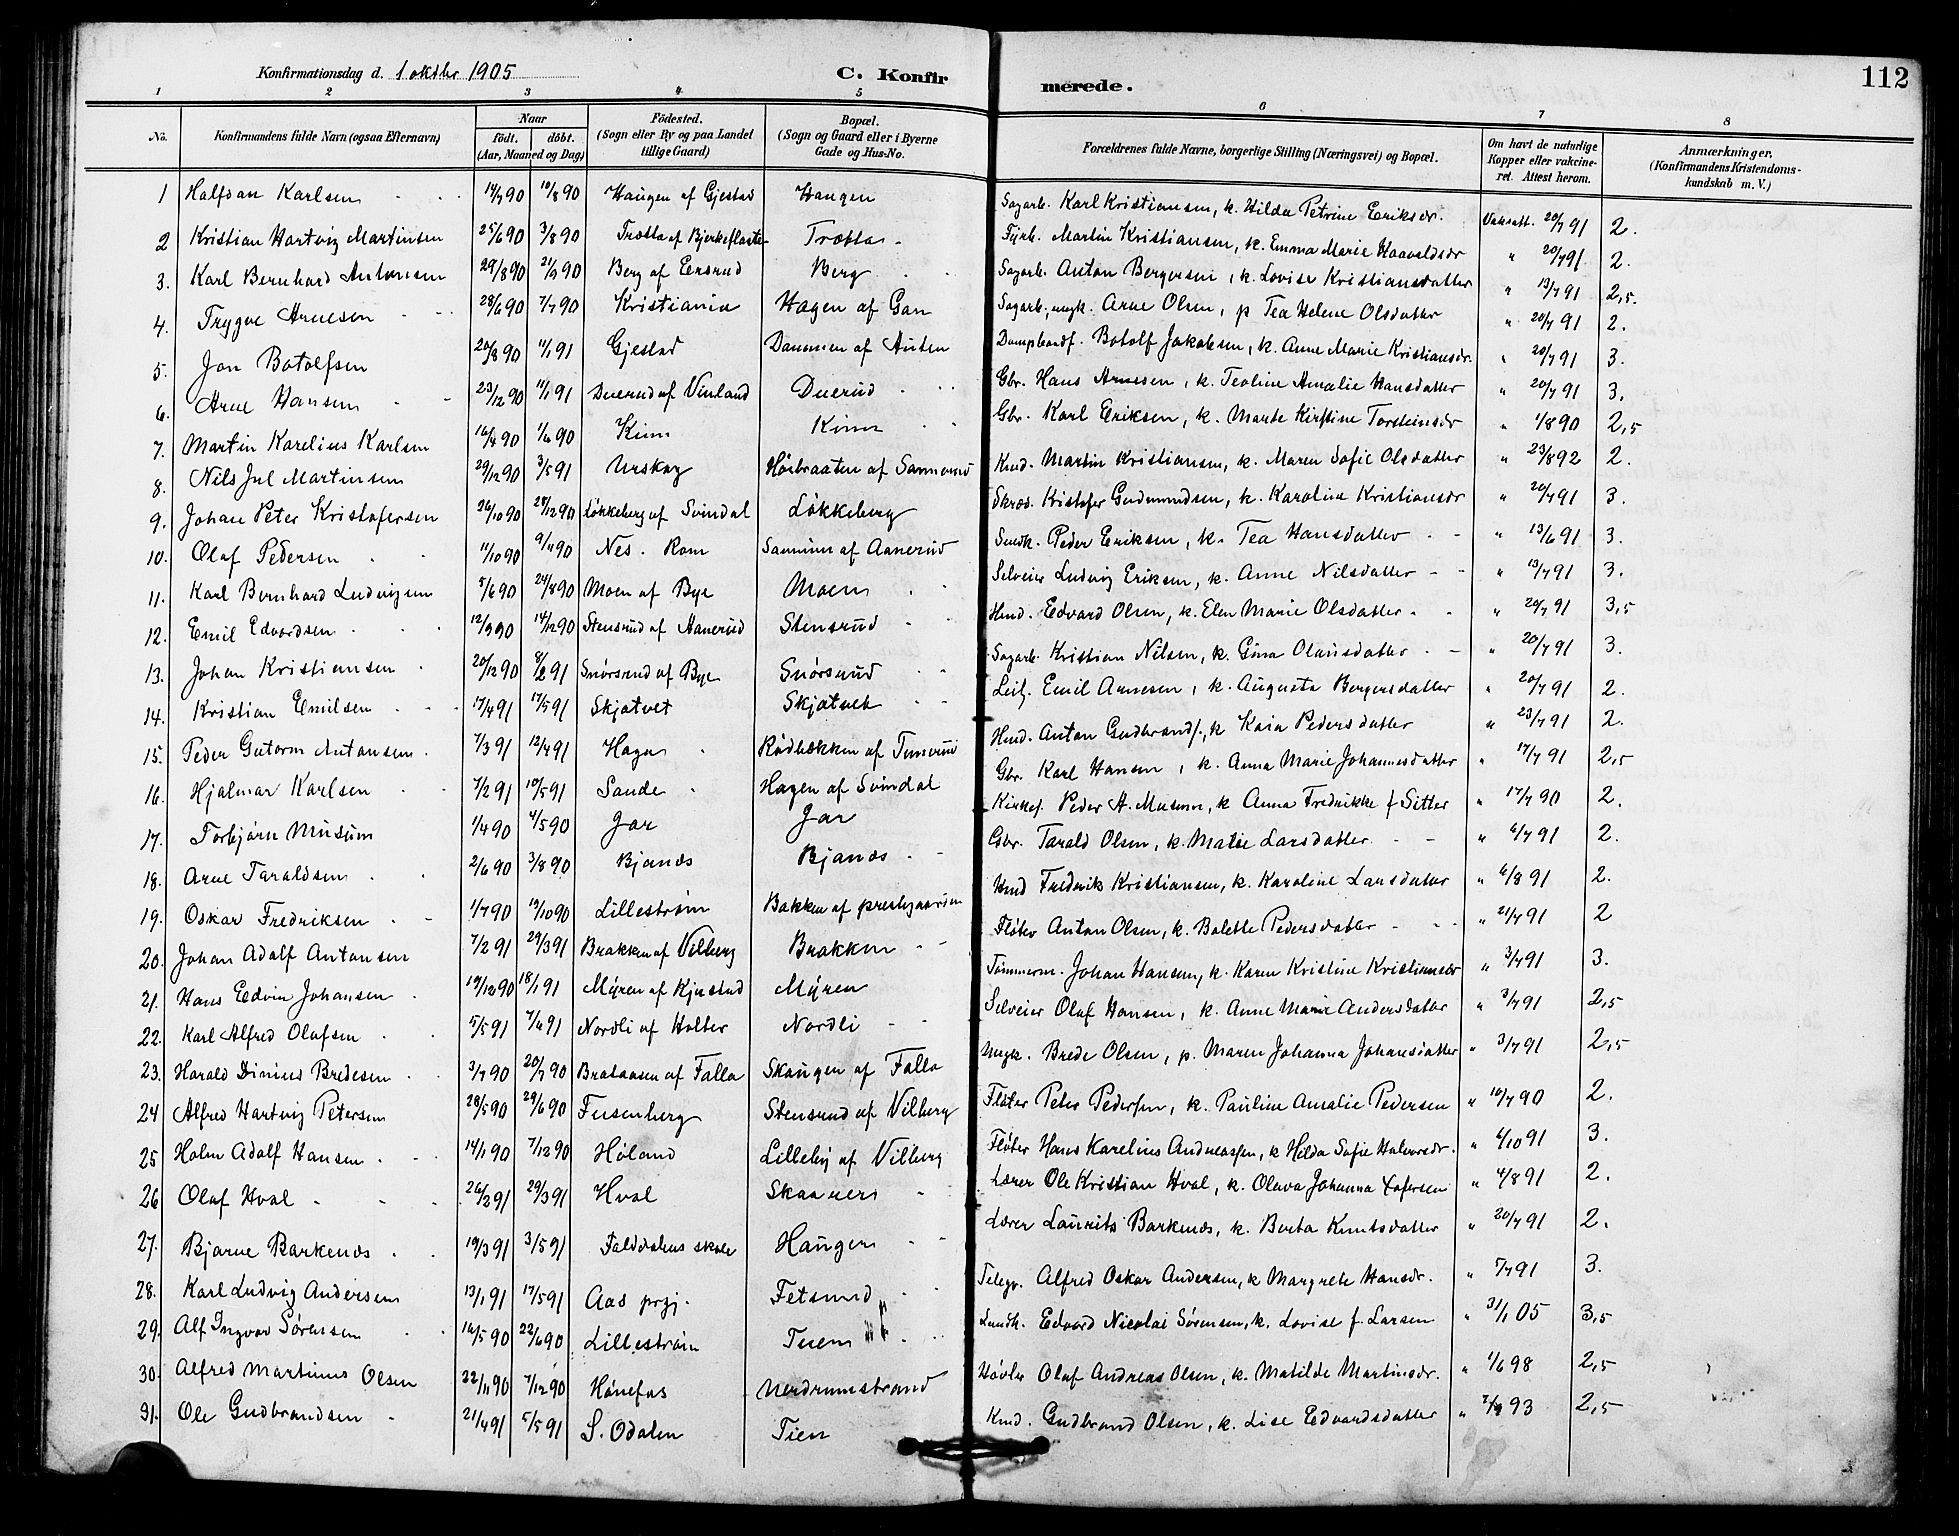 Konfirmationsdag d. 1 oktbr 1905
C. Konfirmerede.
112
1 2 3 4 5 6 7 8
No. Konfirmandens fulde Navn (ogsaa Efternavn) Naar født. døbt. (Aar, Maaned og Dag) Födested. (Sogn eller By og paa Landet tillige Gaard) Bopæl. (Sogn og Gaard eller i Byerne Gade og Hus-No. Forældrenes fulde Navne, borgerlige Stilling (Næringsvei) og Bopæl. Om havt de naturlige Kopper eller vakcineret. Attest herom. Anmærkninger. (Konfirmandens Kristendomskundskab m. V.)
1 Halfdan Karlsen 14/7 90 10/8 90 Haugen af Gjestad Haugen Sagarb. Karl Kristiansen, k. Hilda Petrine Eriksdr. Vaksatt. 20/7 91 2.
2 Kristian Hartvig Martinsen 25/6 90 3/8 90 Trøtta af Bjerkeflaten Trøtta Fyrb. Martin Kristiansen, k. Emma Marie Haavaldsdr " 20/7 91 2.
3. Karl Bernhard Antonsen 29/8 90 21/9 90 Berg af Eersrud Berg Sagarb. Anton Bergersen, k. Lovise Kristiansdatter " 13/7 91 2,5.
4. Trygve Arnesen 28/6 90 7/7 90 Kristiania Hagen af Gan Sagarb., ungk. Arne Olsen, p Tea Helene Olsdatter " 20/7 91 2.
5. Jon Botolfsen 20/8 90 11/1 91 Gjestad Dammen af Austen Dampbaadf. Botolf Jakobsen, k. Anne Marie Kristiansdr. " 20/7 91 3.
6. Arne Hansen 23/12 90 11/1 91 Duerud af Vinland Duerud Gbr. Hans Arnesen, k. Teoline Amalie Hansdatter " 20/7 91 3.
7. Martin Karelius Karlsen 16/4 90 1/6 90 Kinn Kinn Gbr. Karl Eriksen, k. Marte Kirstine Torsteinsdr " 1/8 90 2,5
8. Nils Jul Martinsen 29/12 90 3/5 91 Urskog Hørbraaten af Sannerud Kmd. Martin Kristiansen, k. Maren Sofie Olsdatter " 23/8 92 2.
9. Johan Peter Kristofersen 26/10 90 28/12 90 Løkkeberg af Svindal Løkkeberg Skræd. Kristofer Gudmundsen, k. Karoline Kristiansdr " 20/7 91 3.
10. Olaf Pedersen 11/10 90 9/11 90 Nes. Rom Sannum af Aanerud Smedk. Peder Eriksen, k. Tea Hansdatter " 13/6 91 3.
11. Karl Bernhard Ludvigsen 5/6 90 24/8 90 Moen af Bye Moen Selveier Ludvig Eriksen, k. Anne Nilsdatter " 13/7 91 3.
12. Emil Edvardsen 12/9 90 14/12 90 Stensrud af Hanerud Stensrud Hmd. Edvard Olsen, k. Elen Marie Olsdatter " 20/7 91 3,5
13. Johan Kristiansen 20/12 90 8/2 91 Snørsrud af Bye Snørsrud Sagarb. Kristian Nilsen, k. Gina Olausdatter " 20/7 91 3.
14. Kristian Emilsen 17/4 91 17/5 91 Skjatvet Skjatvet Leil. Emil Arnesen, k. Augusta Bergersdatter " 20/7 91 2.
15. Peder Gutorm Antonsen 7/3 91 12/4 91 Haga Rødbækken af Tunerud Hmd. Anton Gudbrands., k Kaia Pedersdatter " 23/7 91 2.
16. Hjalmar Karlsen 7/2 91 10/5 91 Sande Hagen af Svindal Gbr. Karl Hansen, k. Anna Marie Johannesdatter " 17/7 91 2,5
17. Torbjørn Musum 1/4 90 4/5 90 Jar Jar Kirkes. Peder A. Musum, k. Anna Fredrikke f Sitter " 17/7 90 2.
18. Arne Taraldsen 2/6 90 3/8 90 Bjanes Bjanes Gbr. Tarald Olsen, k. Matie Larsdatter " 6/7 91 2.
19. Oskar Fredriksen 1/7 90 19/10 90 Lillestrøm Bakken af prestegaarden Hmd Frederik Kristiansen, k. Karoline Larsdatter " 6/8 91 2.
20. Johan Adolf Antonsen 7/2 91 29/3 91 Brakken af Vilberg Brakken Fløter Anton Olsen, k. Bolette Pedersdatter " 21/7 91 2
21. Hans Edvin Johansen 19/12 90 18/1 91 Myren af Kjustad Myren Tømmerm. Johan Hansen, k. Karen Kristine Kristiansdr " 3/7 91 3.
22. Karl Alfred Olafsen 5/5 91 7/6 91 Nordli af Holter Nordli Selveier Olaf Hansen, k. Anne Marie Andersdatter " 3/7 91 2,5
23. Harald Dinius Bredesen 3/7 90 20/7 90 Brataasen af Falla Skaugen af Falla Ungk. Brede Olsen, p. Maren Johanna Johansdatter " 3/7 91 2,5
24 Alfred Hartvig Petersen 28/5 90 29/6 90 Feisenberg Stensrud af Vilberg Fløter Peter Pedersen, k. Pauline Amalie Pedersen " 10/7 90 2.
25 Holm Adolf Hansen 14/1 90 7/12 90 Høland Lilleby af Vilberg Fløter Hans Karelius Andreassen, k Hilda Sofie Halvorsdr. " 6/10 91 3.
26 Olaf Hval 26/2 91 29/3 91 Hval Skaaren Lærer Ole Kristian Hval, k. Olava Johanna Tofersen " 4/8 91 2.
27. Bjarne Barkenæs 19/3 91 3/5 91 Falldalens skole Haugen Lærer Laurits Barkenæs, k. Berta Knutsdatter " 20/7 91 2.
28. Karl Ludvig Andersen 13/1 91 17/5 91 Aas prgj. Fetsund Telegr. Alfred Oskar Andersen, k Margrete Hansdr. " 5/7 91 3.
29. Alf Ingvar Sørensen 16/5 90 22/6 90 Lillestrøm Tuen Landh. Edvard Nicolai Sørensen, k. Lovise f. Larsen " 31/1 05 3,5
30. Alfred Martinus Olsen 22/11 90 7/12 90 Hønefos Nerdrumstrand Høvler Olaf Andreas Olsen, k. Matilde Martinsdr. " 1/6 98 2,5
31. Ole Gudbrandsen 21/4 91 5/5 91 S. Odalen Tien Kmd. Gudbrand Olsen, k. Lise Edvardsdatter " 7/7 93 2,5